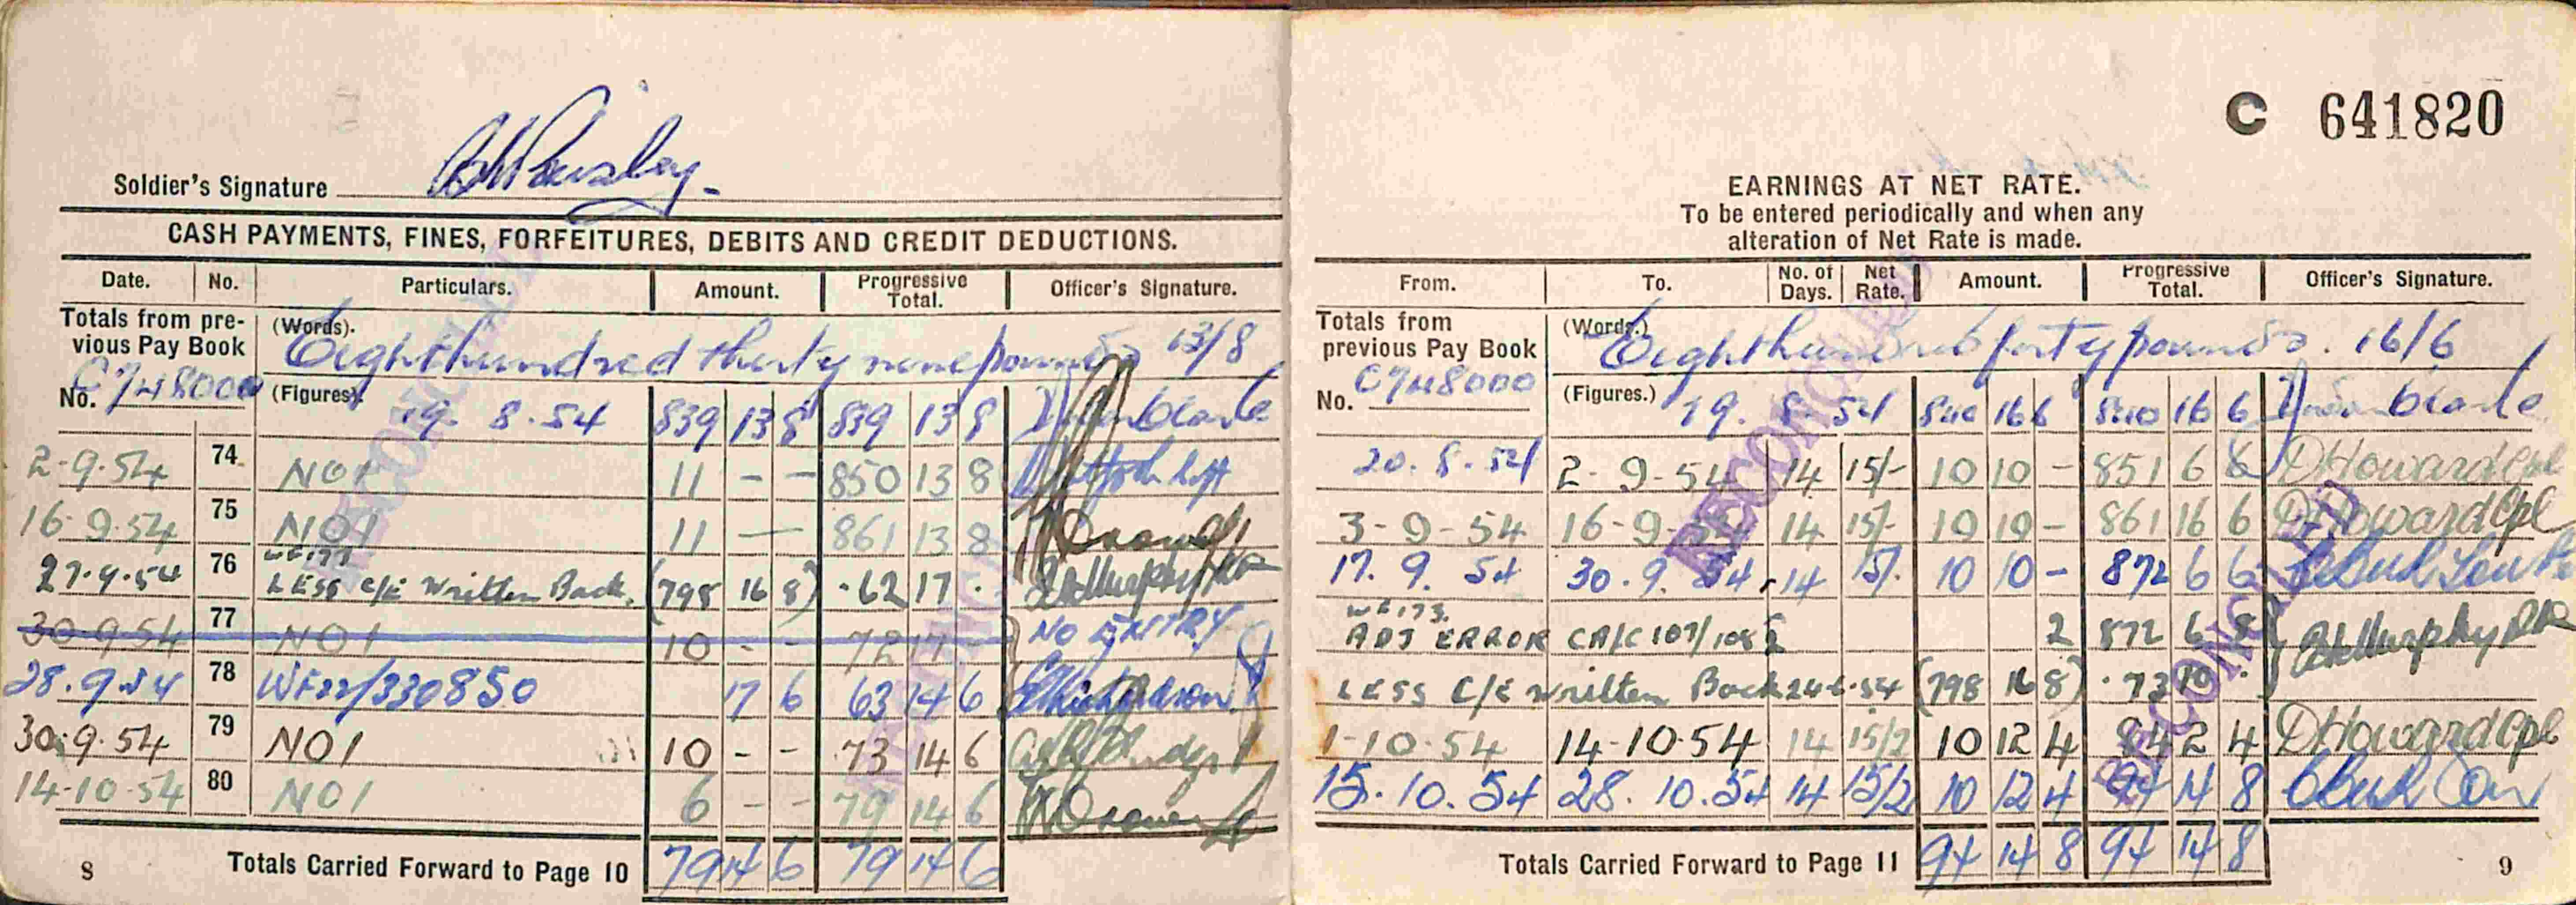 Soldier's Signature
CASH PAYMENTS, FINES, FORFEITURES, DEBITS AND CREDIT DEDUCTIONS.
Date. No. Particulars. Amount. Progressive Total. Officer's Signature.
Totals from previous Pay Book No. C748000
(Words). Eighthundred thirty nine pounds 13/8
(Figures). 19. 8. 54 839 13 8 839 13 8
2-9-54 74 NO1 11 - - 850 13 8
16-9-54 75 NO1 11 - 861 13 8
27.9.54 76 LESS C/E Written Back. (798 16 8) 62 17 .
30-9-54 77 NO1 10 - - 72 17 NO ENTRY
28.9.54 78 WF22/330850 17 6 63 14 6
30.9.54 79 NO1 10 - - 73 14 6
14-10-54 80 NO1 6 - - 79 14 6
8 Totals Carried Forward to Page 10 79 14 6 79 14 6
C 641820
EARNINGS AT NET RATE.
To be entered periodically and when any
alteration of Net Rate is made.
From. To. No. of Days. Net Rate. Amount. Progressive Total. Officer's Signature.
Totals from previous Pay Book No. C748000
(Words.) Eight hundred forty pounds. 16/6
(Figures.) 19. 8. 54 840 16 6 840 16 6
20. 8. 54 2-9-54 14 15/- 10 10 - 851 6 6 DHoward Cpl
3-9-54 16-9-54 14 15/- 10 10 - 861 16 6 DHoward Cpl
17. 9. 54 30. 9. 54 14 15/. 10 10 - 872 6 6
ADJ ERROR CA/C 107/108 2 872 6 8
LESS C/E written Back 24-6-54 (798 16 8) 73 10 .
1-10-54 14-10-54 14 15/2 10 12 4 84 2 4 DHoward Cpl
15. 10. 54 28. 10. 54 14 15/2 10 12 4 94 14 8
Totals Carried Forward to Page 11 94 14 8 94 14 8 9
RECONCILED